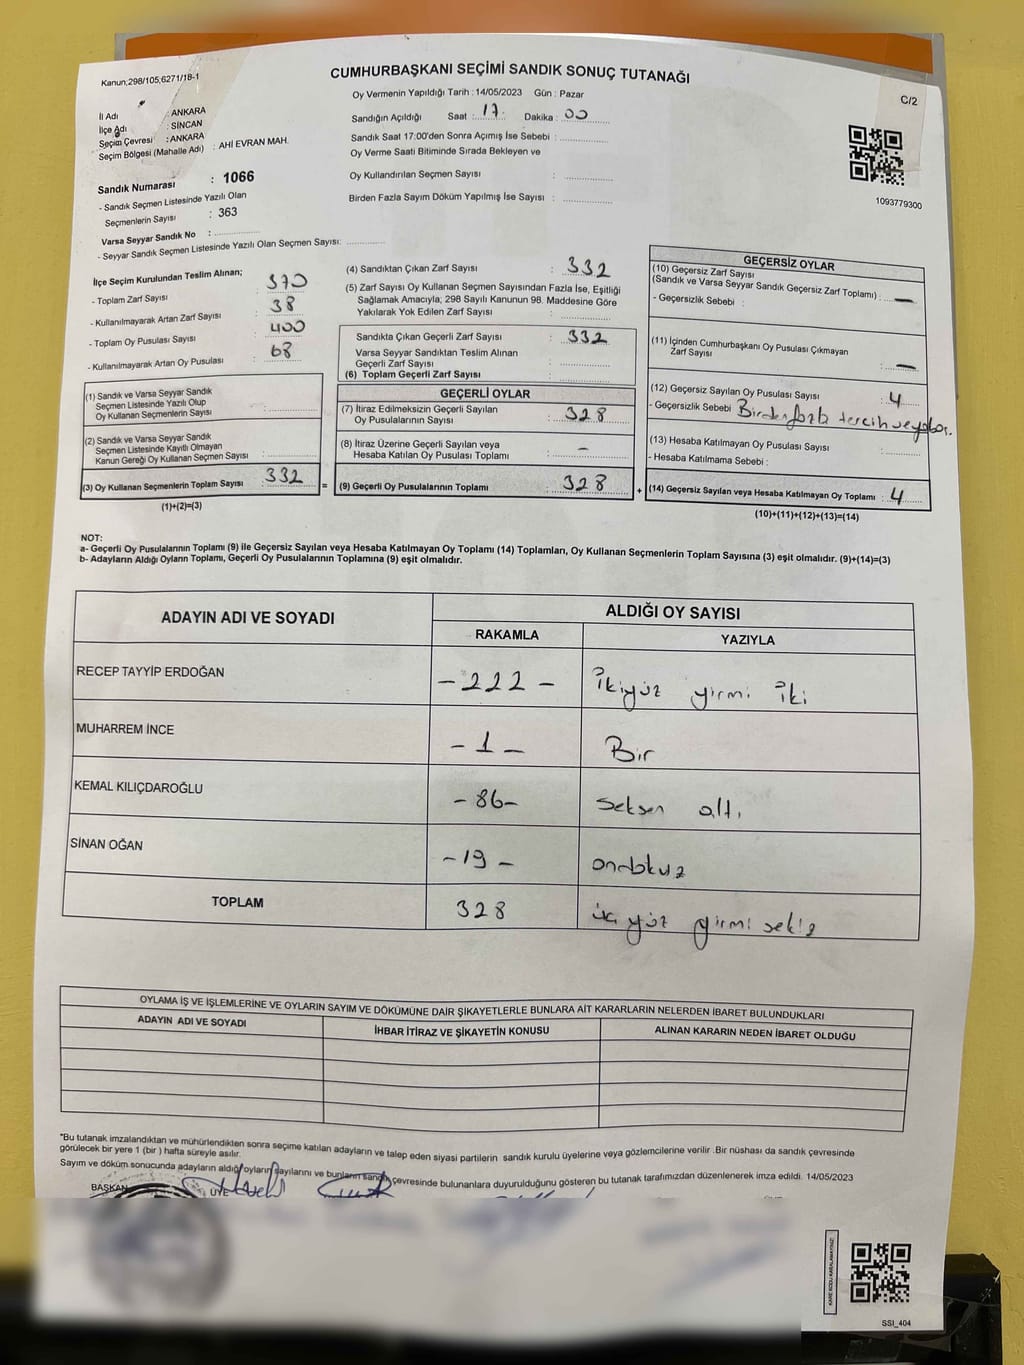 Kanun,298/105,6271/18-1
CUMHURBAŞKANI SEÇİMİ SANDIK SONUÇ TUTANAĞI
C/2
İl Adı : ANKARA
İlçe Adı : SİNCAN
Seçim Çevresi : ANKARA
Seçim Bölgesi (Mahalle Adı) : AHİ EVRAN MAH.
Sandık Numarası : 1066
- Sandık Seçmen Listesinde Yazılı Olan
Seçmenlerin Sayısı : 363
Varsa Seyyar Sandık No :
- Seyyar Sandık Seçmen Listesinde Yazılı Olan Seçmen Sayısı:
Oy Vermenin Yapıldığı Tarih : 14/05/2023 Gün : Pazar
Sandığın Açıldığı Saat : 17 Dakika : 00
Sandık Saat 17:00'den Sonra Açımış İse Sebebi :
Oy Verme Saati Bitiminde Sırada Bekleyen ve
Oy Kullandırılan Seçmen Sayısı :
Birden Fazla Sayım Döküm Yapılmış İse Sayısı :
1093779300
İlçe Seçim Kurulundan Teslim Alınan;
- Toplam Zarf Sayısı : 370
- Kullanılmayarak Artan Zarf Sayısı : 38
- Toplam Oy Pusulası Sayısı : 400
- Kullanılmayarak Artan Oy Pusulası : 68
(1) Sandık ve Varsa Seyyar Sandık
Seçmen Listesinde Yazılı Olup
Oy Kullanan Seçmenlerin Sayısı :
(2) Sandık ve Varsa Seyyar Sandık
Seçmen Listesinde Kayıtlı Olmayan
Kanun Gereği Oy Kullanan Seçmen Sayısı :
(3) Oy Kullanan Seçmenlerin Toplam Sayısı : 332
(1)+(2)=(3)
(4) Sandıktan Çıkan Zarf Sayısı : 332
(5) Zarf Sayısı Oy Kullanan Seçmen Sayısından Fazla İse, Eşitliği
Sağlamak Amacıyla; 298 Sayılı Kanunun 98. Maddesine Göre
Yakılarak Yok Edilen Zarf Sayısı :
Sandıkta Çıkan Geçerli Zarf Sayısı : 332
Varsa Seyyar Sandıktan Teslim Alınan
Geçerli Zarf Sayısı :
(6) Toplam Geçerli Zarf Sayısı :
GEÇERLİ OYLAR
(7) İtiraz Edilmeksizin Geçerli Sayılan
Oy Pusulasının Sayısı : 328
(8) İtiraz Üzerine Geçerli Sayılan veya
Hesaba Katılan Oy Pusulası Toplamı : -
= (9) Geçerli Oy Pusulalarının Toplamı : 328
GEÇERSİZ OYLAR
(10) Geçersiz Zarf Sayısı
(Sandık ve Varsa Seyyar Sandık Geçersiz Zarf Toplamı) : -
- Geçersizlik Sebebi :
(11) İçinden Cumhurbaşkanı Oy Pusulası Çıkmayan
Zarf Sayısı : -
(12) Geçersiz Sayılan Oy Pusulası Sayısı : 4
- Geçersizlik Sebebi : Birden fazla tercih
(13) Hesaba Katılmayan Oy Pusulası Sayısı :
- Hesaba Katılmama Sebebi :
+ (14) Geçersiz Sayılan veya Hesaba Katılmayan Oy Toplamı : 4
(10)+(11)+(12)+(13)=(14)
NOT:
a- Geçerli Oy Pusulalarının Toplamı (9) ile Geçersiz Sayılan veya Hesaba Katılmayan Oy Toplamı (14) Toplamları, Oy Kullanan Seçmenlerin Toplam Sayısına (3) eşit olmalıdır. (9)+(14)=(3)
b- Adayların Aldığı Oyların Toplamı, Geçerli Oy Pusulalarının Toplamına (9) eşit olmalıdır.
ADAYIN ADI VE SOYADI ALDIĞI OY SAYISI
RAKAMLA YAZIYLA
RECEP TAYYİP ERDOĞAN - 222 - ikiyüz yirmi iki
MUHARREM İNCE - 1 - Bir
KEMAL KILIÇDAROĞLU - 86 - seksen altı
SİNAN OĞAN - 19 - ondokuz
TOPLAM 328 üç yüz yirmi sekiz
OYLAMA İŞ VE İŞLEMLERİNE VE OYLARIN SAYIM VE DÖKÜMÜNE DAİR ŞİKAYETLERLE BUNLARA AİT KARARLARIN NELERDEN İBARET BULUNDUKLARI
ADAYIN ADI VE SOYADI İHBAR İTİRAZ VE ŞİKAYETİN KONUSU ALINAN KARARIN NEDEN İBARET OLDUĞU
*Bu tutanak imzalandıktan ve mühürlendikten sonra seçime katılan adayların ve talep eden siyasi partilerin sandık kurulu üyelerine veya gözlemcilerine verilir. Bir nüshası da sandık çevresinde
görülecek bir yere 1 (bir ) hafta süreyle asılır.
Sayım ve döküm sonucunda adayların aldığı oyların sayılarını ve bunların sandık çevresinde bulunanlara duyurulduğunu gösteren bu tutanak tarafımızdan düzenlenerek imza edildi. 14/05/2023
BAŞKAN ÜYE
KARE KODU KARALAMAYINIZ!
SSI_404